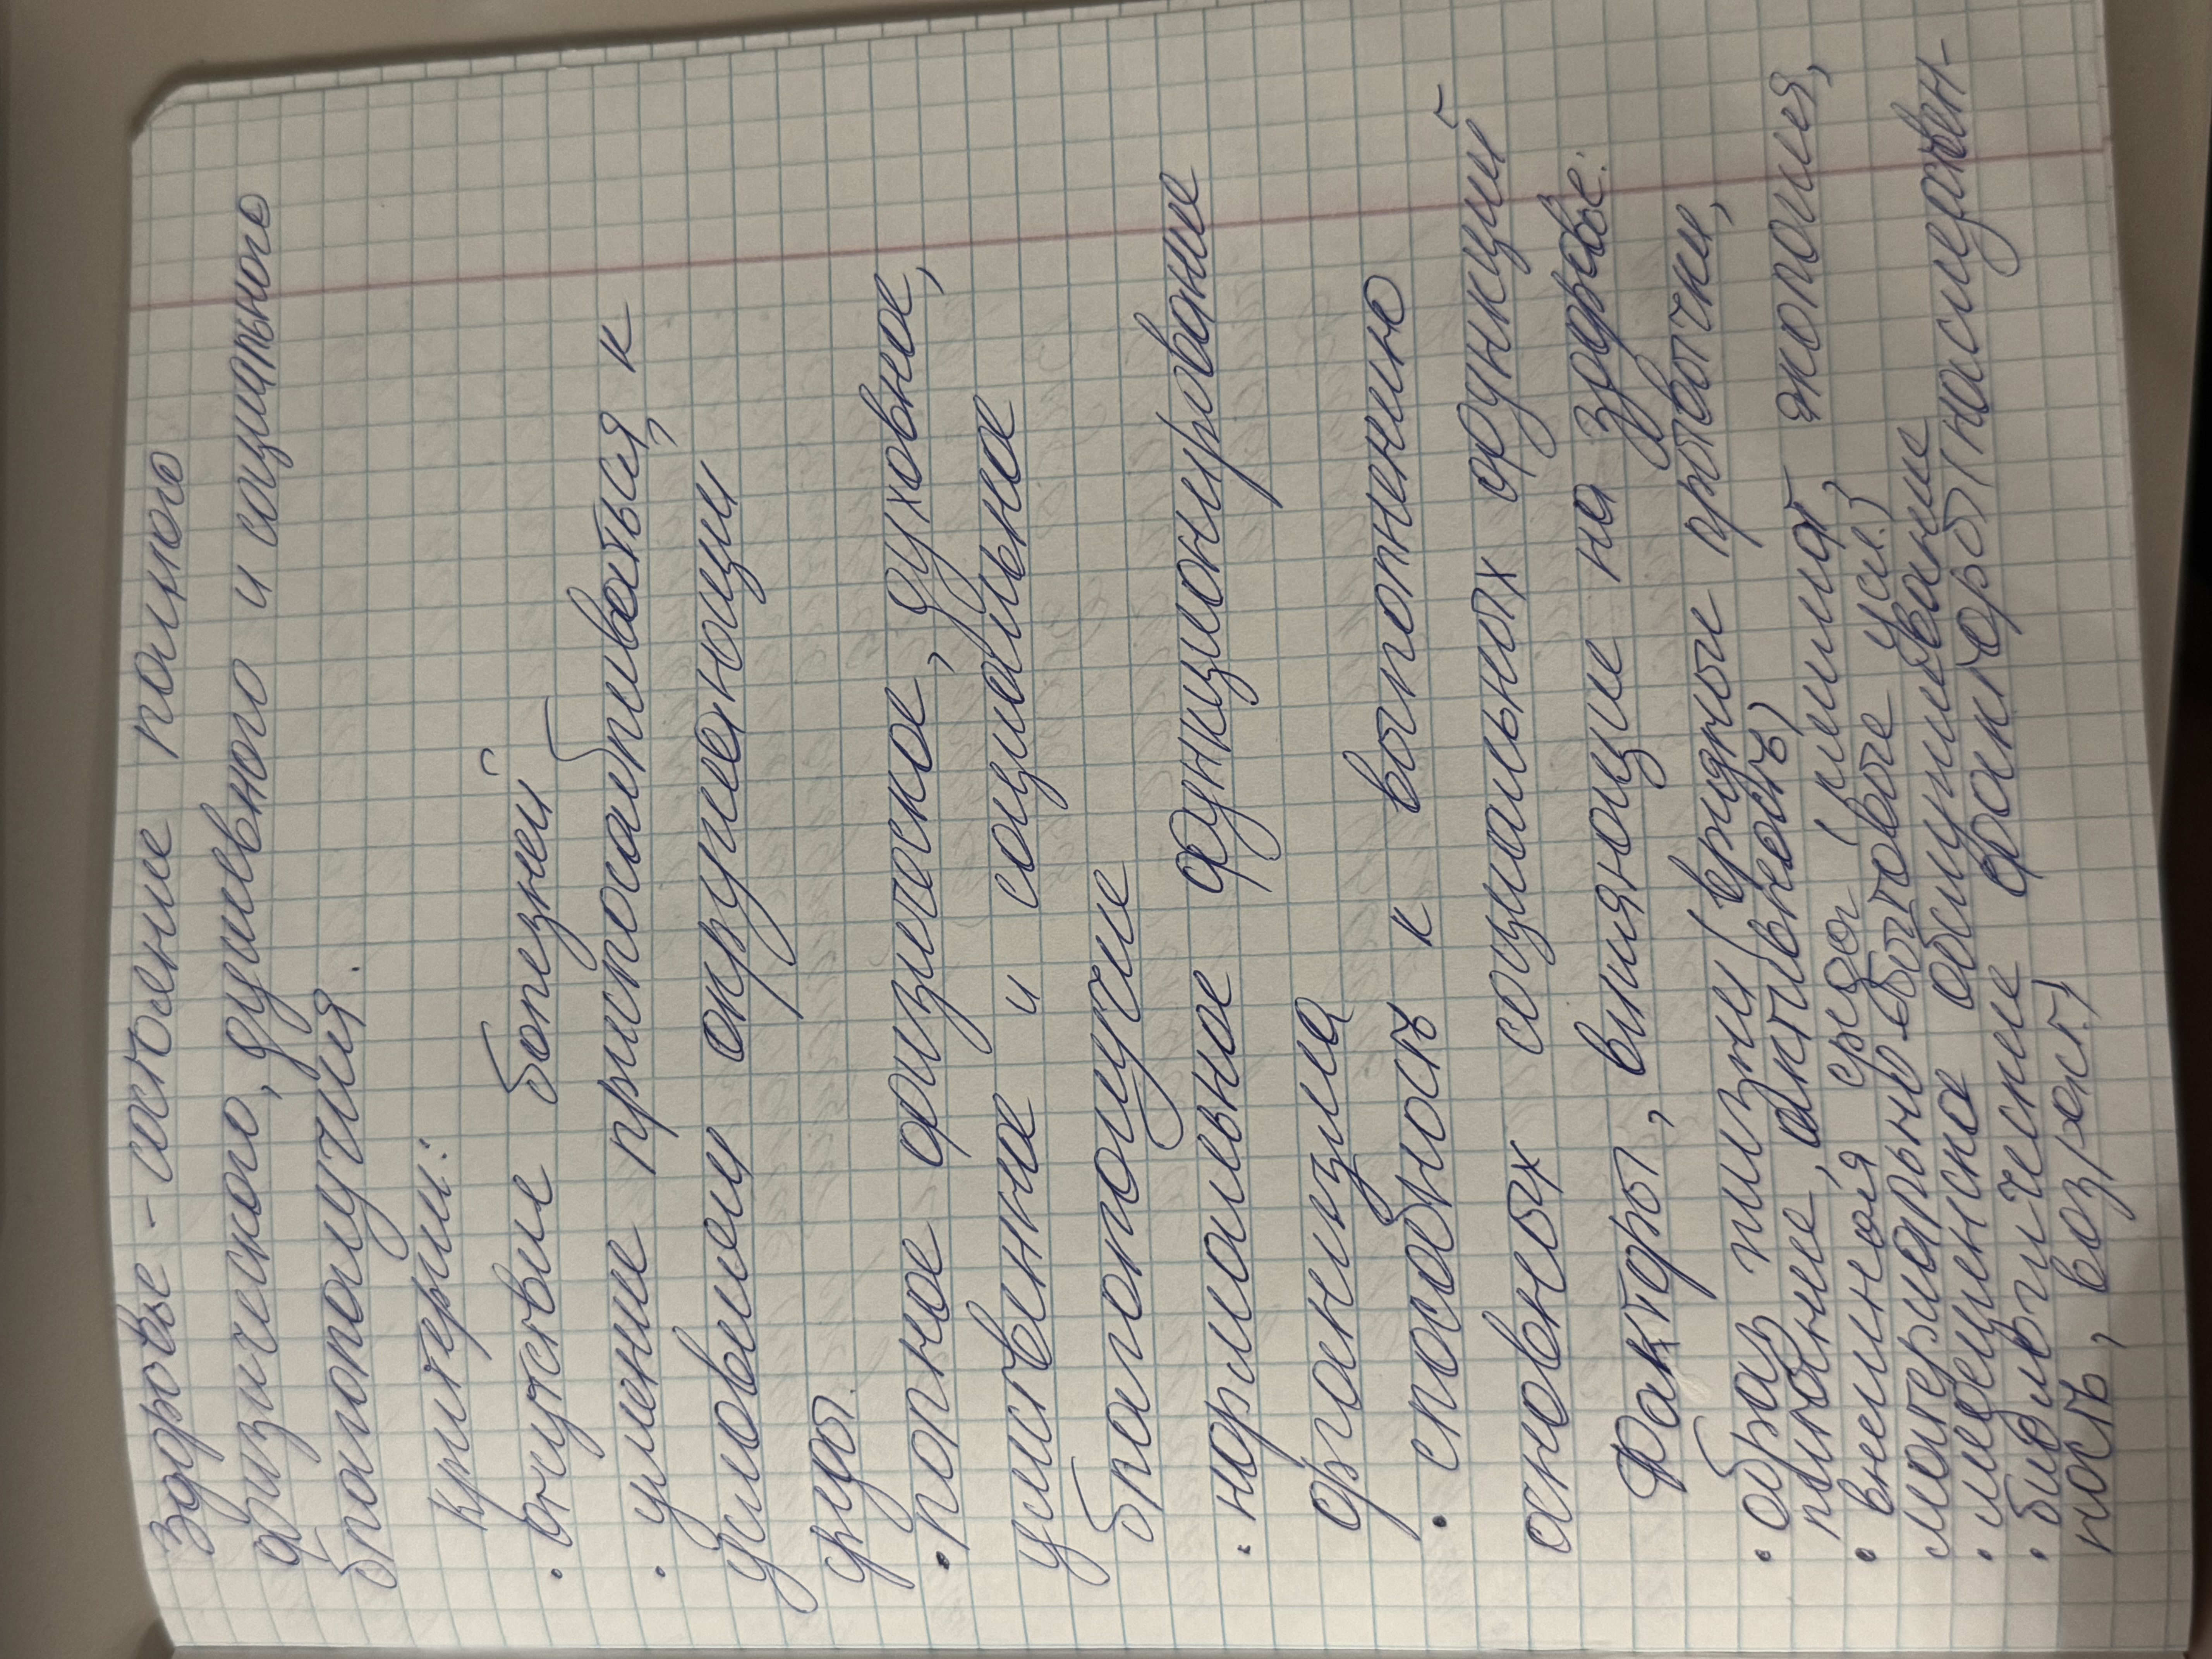 Здоровье - состоение полного
физического, душевного и социального
благополучия.
критерии:
• отсутствие болезней
• умение приспосабливаться, к
условием окружающий
среды.
• полное физическое, духовное,
умственние и социальное
благополучие
• нормальное функционирование
организма
• способность к выполнению
основных социальных функций
Факторы, влияющие на здоровье:
• образ жизни (вредные привычки,
питание, активность)
• внешняя среда (климат, экология,
материально-бытовые усл.)
• медецинское обслуживание
• биологические факторы (наследствен-
ность, возраст)